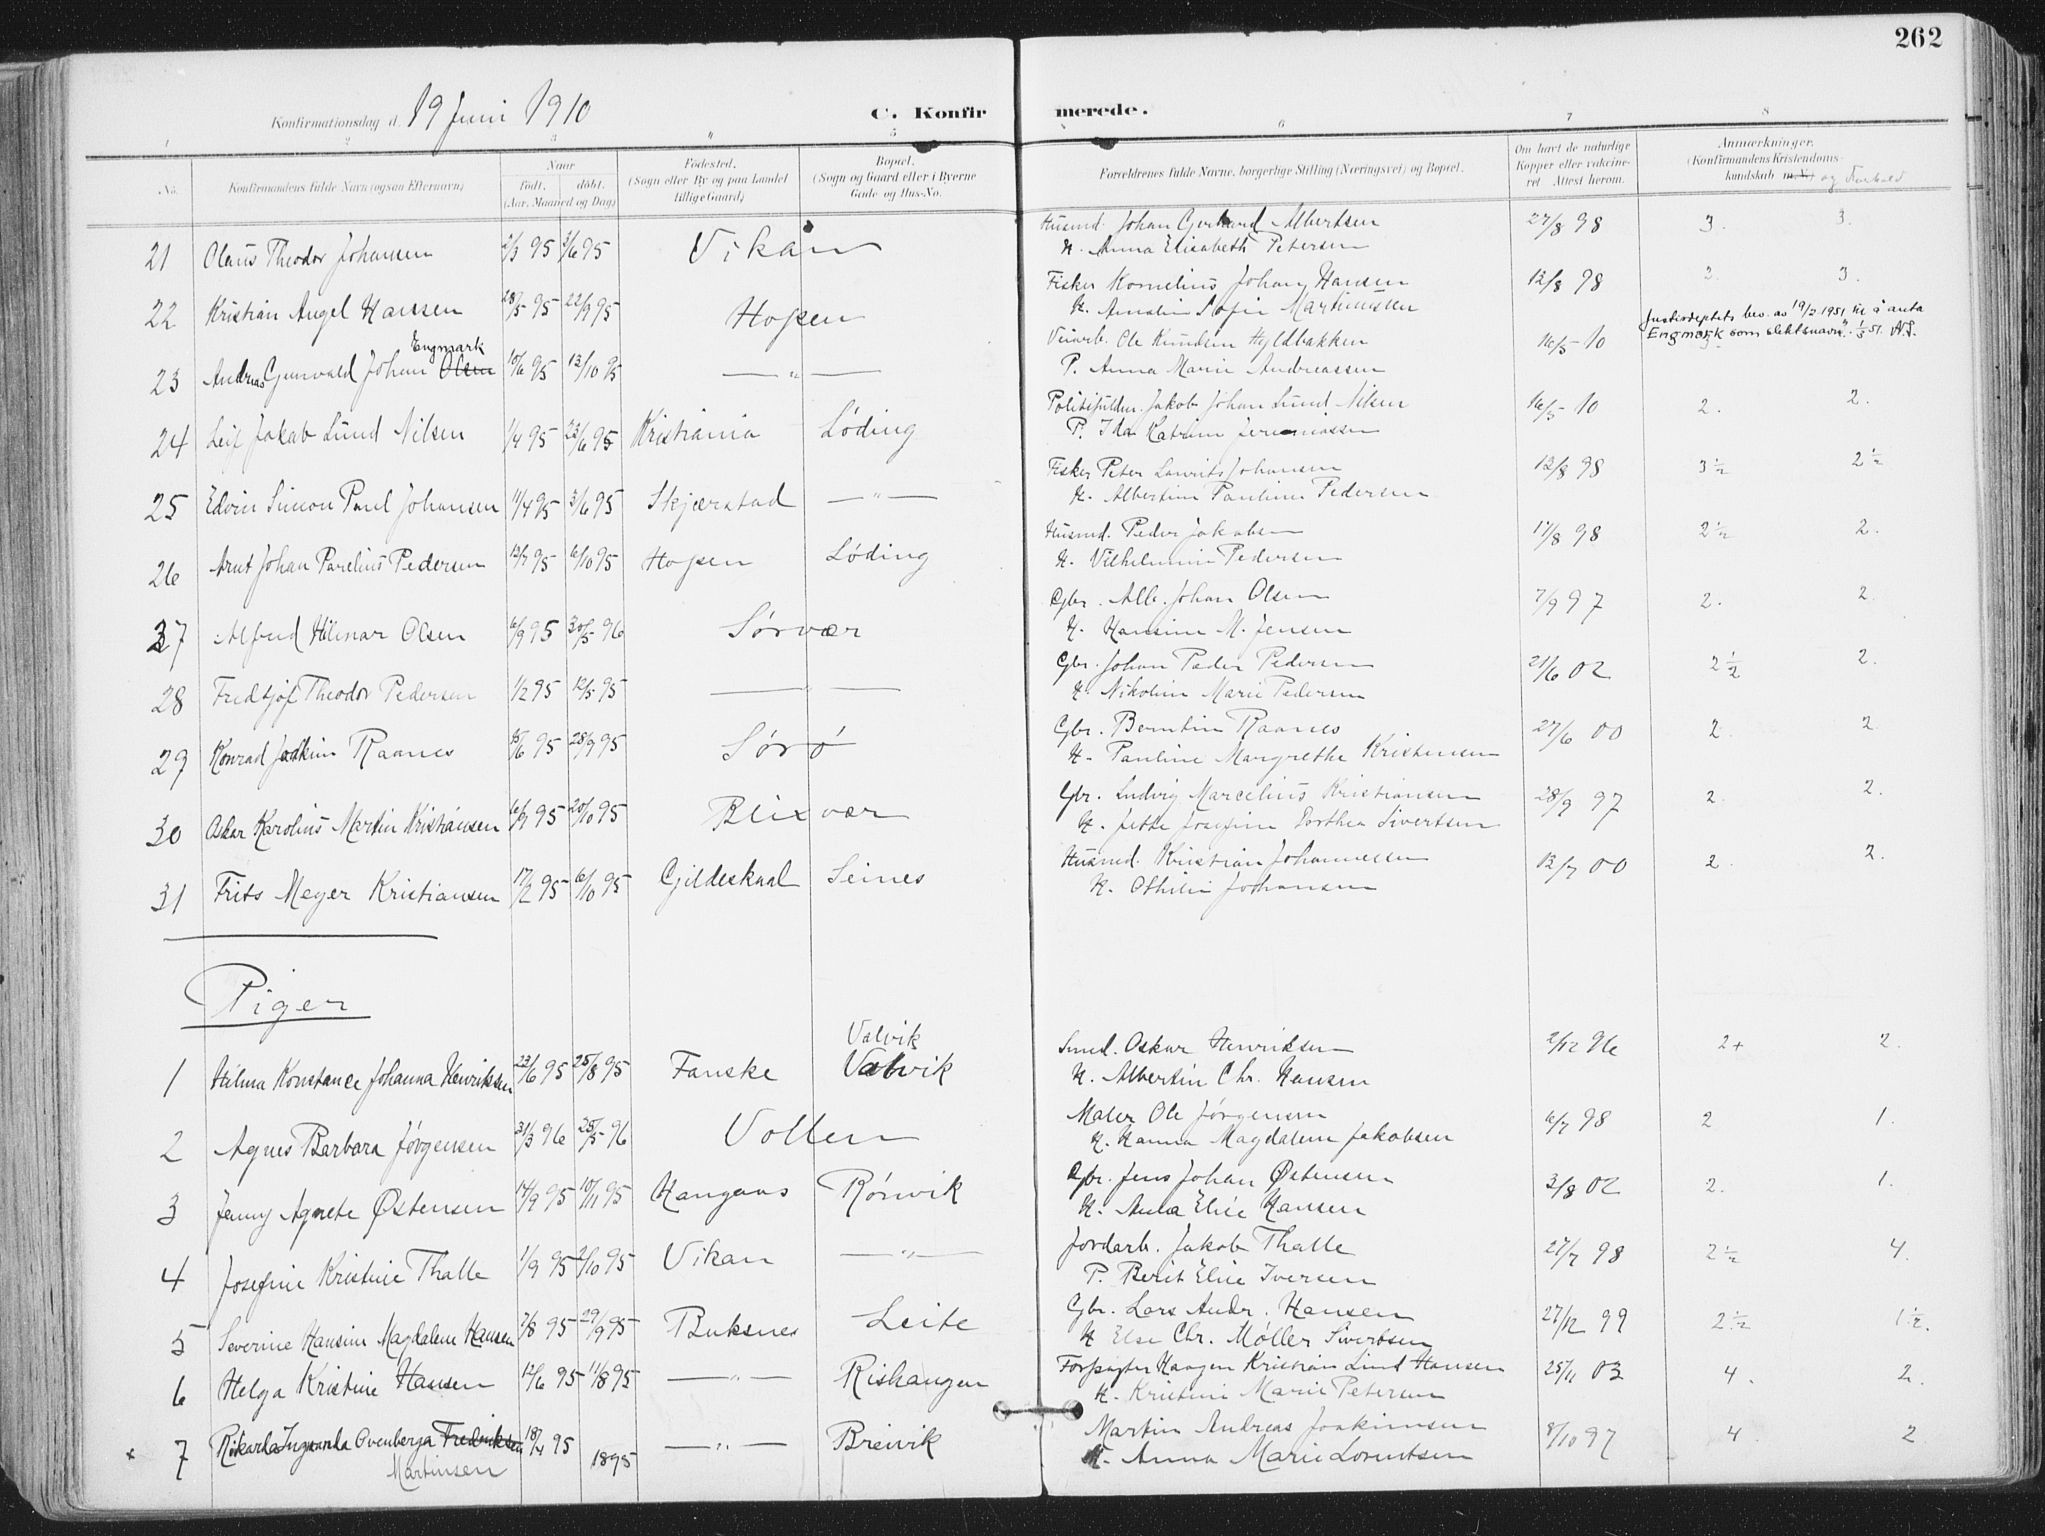 262
Konfirmationsdag d. 19 Juni 1910
C. Konfirmerede.
1 2 3 " 5 6 7 8
No. Konfirmandens fulde Navn (ogsaa Efternavn) Naar født. døbt. (Aar, Maaned og Dag) Fødested. (Sogn eller By og paa Landet tillige Gaard) Bopæl. (Sogn og Gaard eller i Byerne Gade og Hus-No. Forældrenes fulde Navne, borgerlige Stilling (Næringsvei) og Bopæl. Om havt de naturlige Kopper eller vakcineret Attest herom. Anmærkninger. (Konfirmandens Kristendomskundskab og Forhold
21 Olaus Theodor Johansen 2/3 95 3/6 95 Vikan Husmd. Johan Gerhard Albertsen 27/8 98 3. 3.
H. Anna Elisabeth Petersen
22 Kristian Angel Hansen 28/5 95 22/9 95 Hopen Fisker Kornelius Johan Hansen 12/8 98 2. 3.
H. Amalie Sofie Martinussen
Justisdeptets bev. av 19/2 1951 til å anta
Engmark som slektsnavn. 1/3 51.
23 Andreas Gunvald Johan Olsen Engmark 10/6 95 13/10 95 — " — Veiarb. Ole Knudsen Hyldbakken 16/5 10
P. Anna Marie Andreassen
24 Leif Jakob Lund Nilsen 1/4 95 23/6 95 Kristiania Løding Politifuldm. Jakob Johan Lund Nilsen 16/5 10 2. 2.
P. Ida Katrine Jeremiassen
25 Edvin Simon Paul Johansen 11/4 95 3/6 95 Skjerstad — " — Fisker Peter Laurits Johansen 12/8 98 3 1/2 2 1/2
H. Albertine Pauline Pedersen
26 Arnt Johan Parelius Pedersen 13/7 95 6/10 95 Hopen Løding Husmd. Peder Jakobsen 17/8 98 2 1/2 2.
H. Vilhelmine Pedersen
27 Alfred Hilmar Olsen 6/9 95 30/5 96 Sørvær Gbr. Alb. Johan Olsen 7/9 97 2. 2.
H. Hansine M. Jensen
28 Fredtjof Theodor Pedersen 1/2 95 12/5 95 — " — Gbr. Johan Peder Pedersen 21/6 02 2 1/2 2.
H. Nikoline Marie Pedersen
29 Konrad Joakim Raanes 15/6 95 28/9 95 Sørø Gbr. Berntin Raanes 27/6 00 2. 2.
H. Pauline Margrethe Kristensen
30 Oskar Karolius Martin Kristiansen 6/7 95 20/10 95 Blixvær Gbr. Ludvig Marcelius Kristiansen 28/9 97 2. 2.
H. Jette Josefine Dorthea Sivertsen
31 Frits Meyer Kristiansen 17/2 95 6/10 95 Gildeskaal Seines Husmd. Kristian Johannessen 13/7 00 2. 2.
H. Othilie Johansen
Piger
Valvik
1 Hilma Konstance Johanna Henriksen 23/6 95 25/8 95 Fauske Valvik Smed. Oskar Henriksen 2/12 96 2+ 2.
H. Albertine Chr. Hansen
2 Agnes Barbara Jørgensen 31/3 96 25/5 96 Vollen Maler Ole Jørgensen 6/7 98 2 1.
H. Hanna Magdalene Jakobsen
3 Jenny Agnete Østensen 14/9 95 10/11 95 Haugaas Rønvik Gbr. Jens Johan Østensen 3/8 02 2. 1.
H. Anna Elise Hansen
4 Josefine Kristine Thalle 1/9 95 2/10 95 Vikan — " — Jordarb. Jakob Thalle 27/7 98 2 1/2 4.
P. Berit Elise Iversen
5 Severine Hansine Magdalene Hansen 7/8 95 29/9 95 Buksnes Leite Gbr. Lars Andr. Hansen 27/12 99 2 1/2 1 1/2.
H. Else Chr. Møller Sivertsen
6 Helga Kristine Hansen 12/6 95 11/8 95 — " — Rishaugen Forpagter Haagen Kristian Lind Hansen 25/11 03 4. 2.
H. Kristine Marie Petersen
x 7 Rikarda Ingvarda Ovenberga Fredriksen 18/4 95 1895 — " — Breivik Martin Andreas Joakimsen 8/10 97 4 2
Martinsen
H. Anna Marie Lorentsen